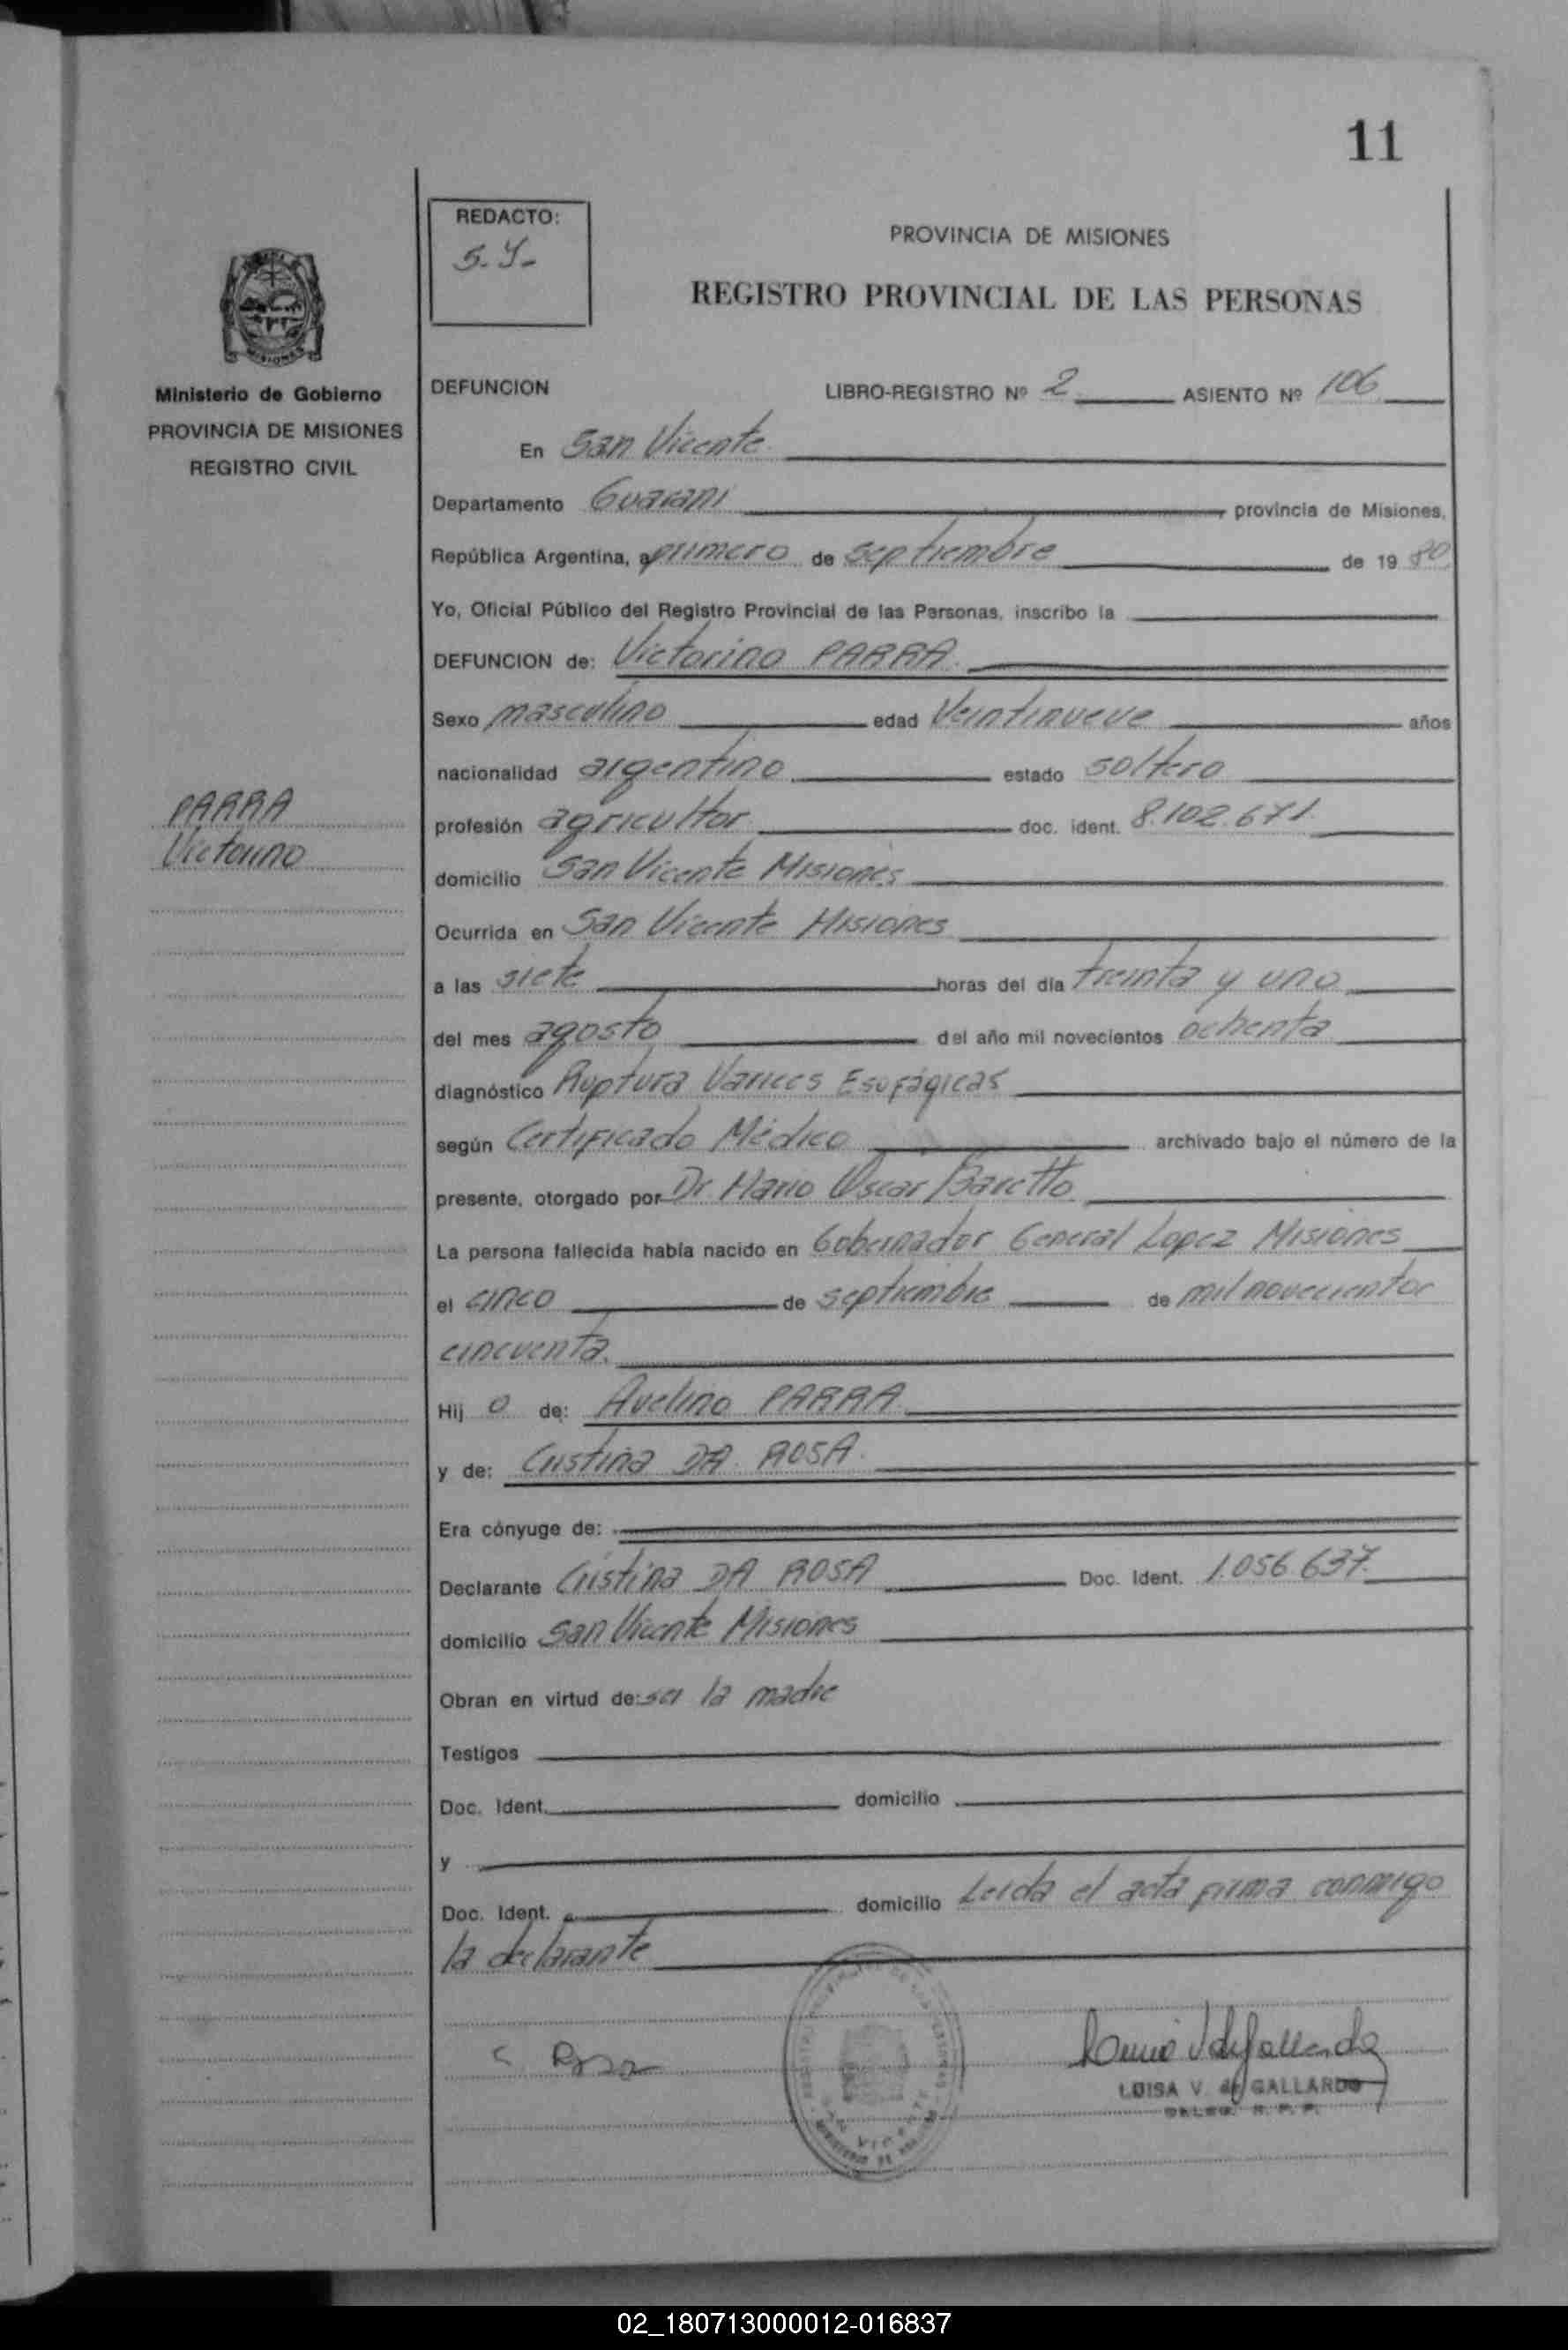 11
REDACTO:
S. Y-
PROVINCIA DE MISIONES
REGISTRO PROVINCIAL DE LAS PERSONAS
Ministerio de Gobierno
PROVINCIA DE MISIONES
REGISTRO CIVIL
PARRA
Victorino
DEFUNCION LIBRO-REGISTRO Nº 2 ASIENTO Nº 106
En San Vicente
Departamento Guarani provincia de Misiones,
República Argentina, a primero de septiembre de 19 80
Yo, Oficial Público del Registro Provincial de las Personas, inscribo la
DEFUNCION de: Victorino PARRA.
Sexo masculino edad Veintinueve años
nacionalidad argentino estado soltero
profesión agricultor doc. ident. 8.102.671.
domicilio San Vicente Misiones
Ocurrida en San Vicente Misiones
a las siete horas del día treinta y uno
del mes agosto del año mil novecientos ochenta
diagnóstico Ruptura Varices Esofágicas
según Certificado Médico archivado bajo el número de la
presente, otorgado por Dr Mario Oscar Baretto
La persona fallecida había nacido en Gobernador General Lopez Misiones
el cinco de septiembre de mil novecientos
cincuenta.
Hij o de: Avelino PARRA
y de: Cristina DA ROSA.
Era cónyuge de:
Declarante Cristina DA ROSA Doc. Ident. 1.056.637.
domicilio San Vicente Misiones
Obran en virtud de: ser la madre
Testigos
Doc. Ident. domicilio
y
Doc. Ident. domicilio Leida el acta firma conmigo
la declarante
C Rosa
LUISA V. de GALLARDO
DELEG. R. P. P.
02_180713000012-016837